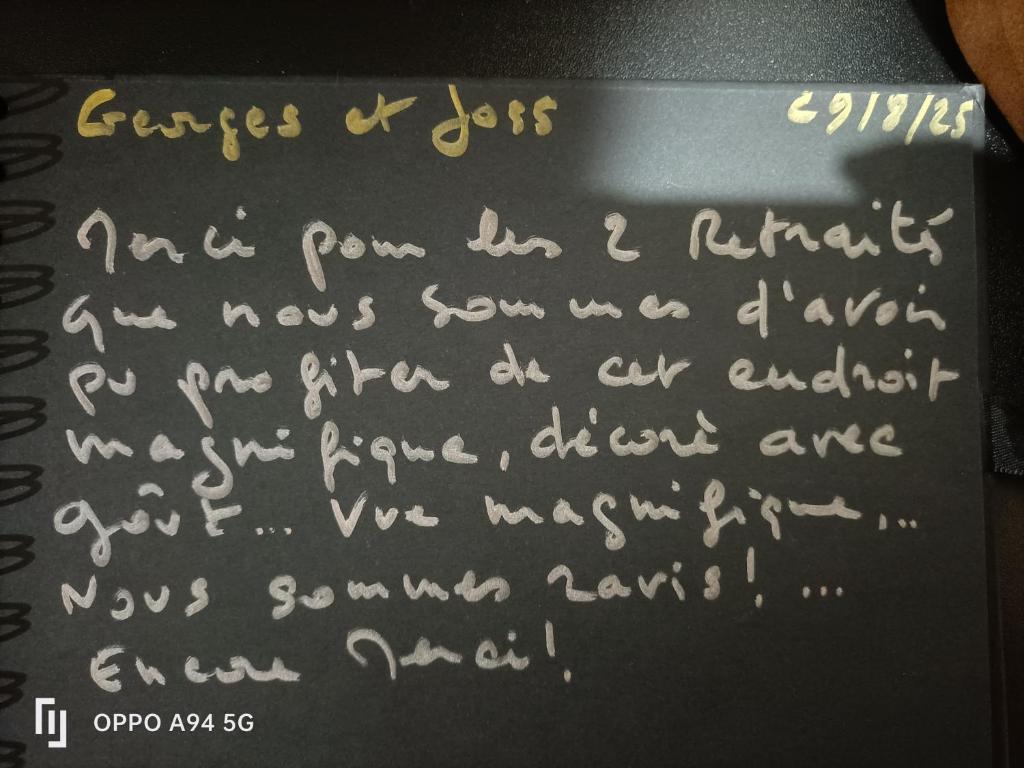 Georges et Joss
9/8/25
Merci pour les 2 Retraités
que nous sommes d'avoir
pu profiter de cet endroit
magnifique, décoré avec
goût... Vue magnifique...
Nous sommes ravis! ...
Encore Merci!
OPPO A94 5G